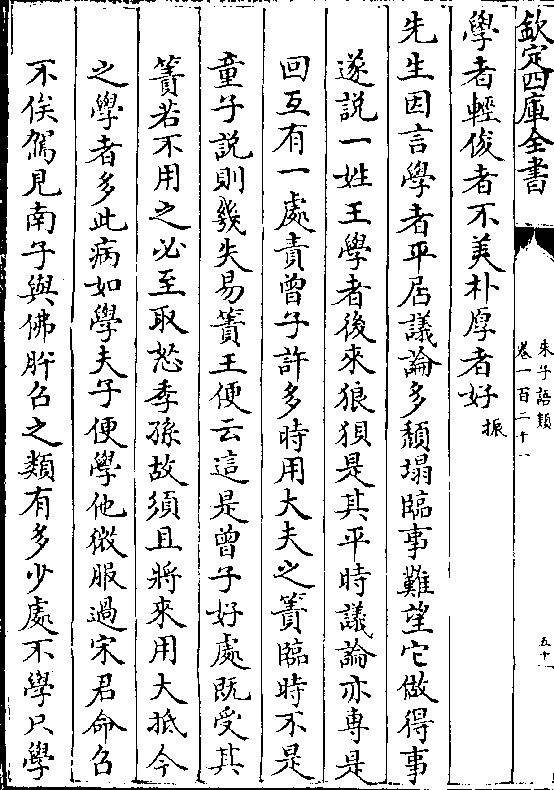 欽定四庫全書
朱子語類
卷一百二十一
五十一
學者輕俊者不美朴厚者好振
先生因言學者平居議論多頹塌臨事難望它做得事
遂説一姓王學者後來狼狽是其平時議論亦専是
回互有一處責曾子許多時用大夫之簀臨時不是
童子説則幾失易簀王便云這是曾子好處既受其
簀若不用之必至取怒季孫故須且將來用大抵今
之學者多此病如學夫子便學他微服過宋君命召
不俟駕見南子與佛肸召之類有多少處不學只學